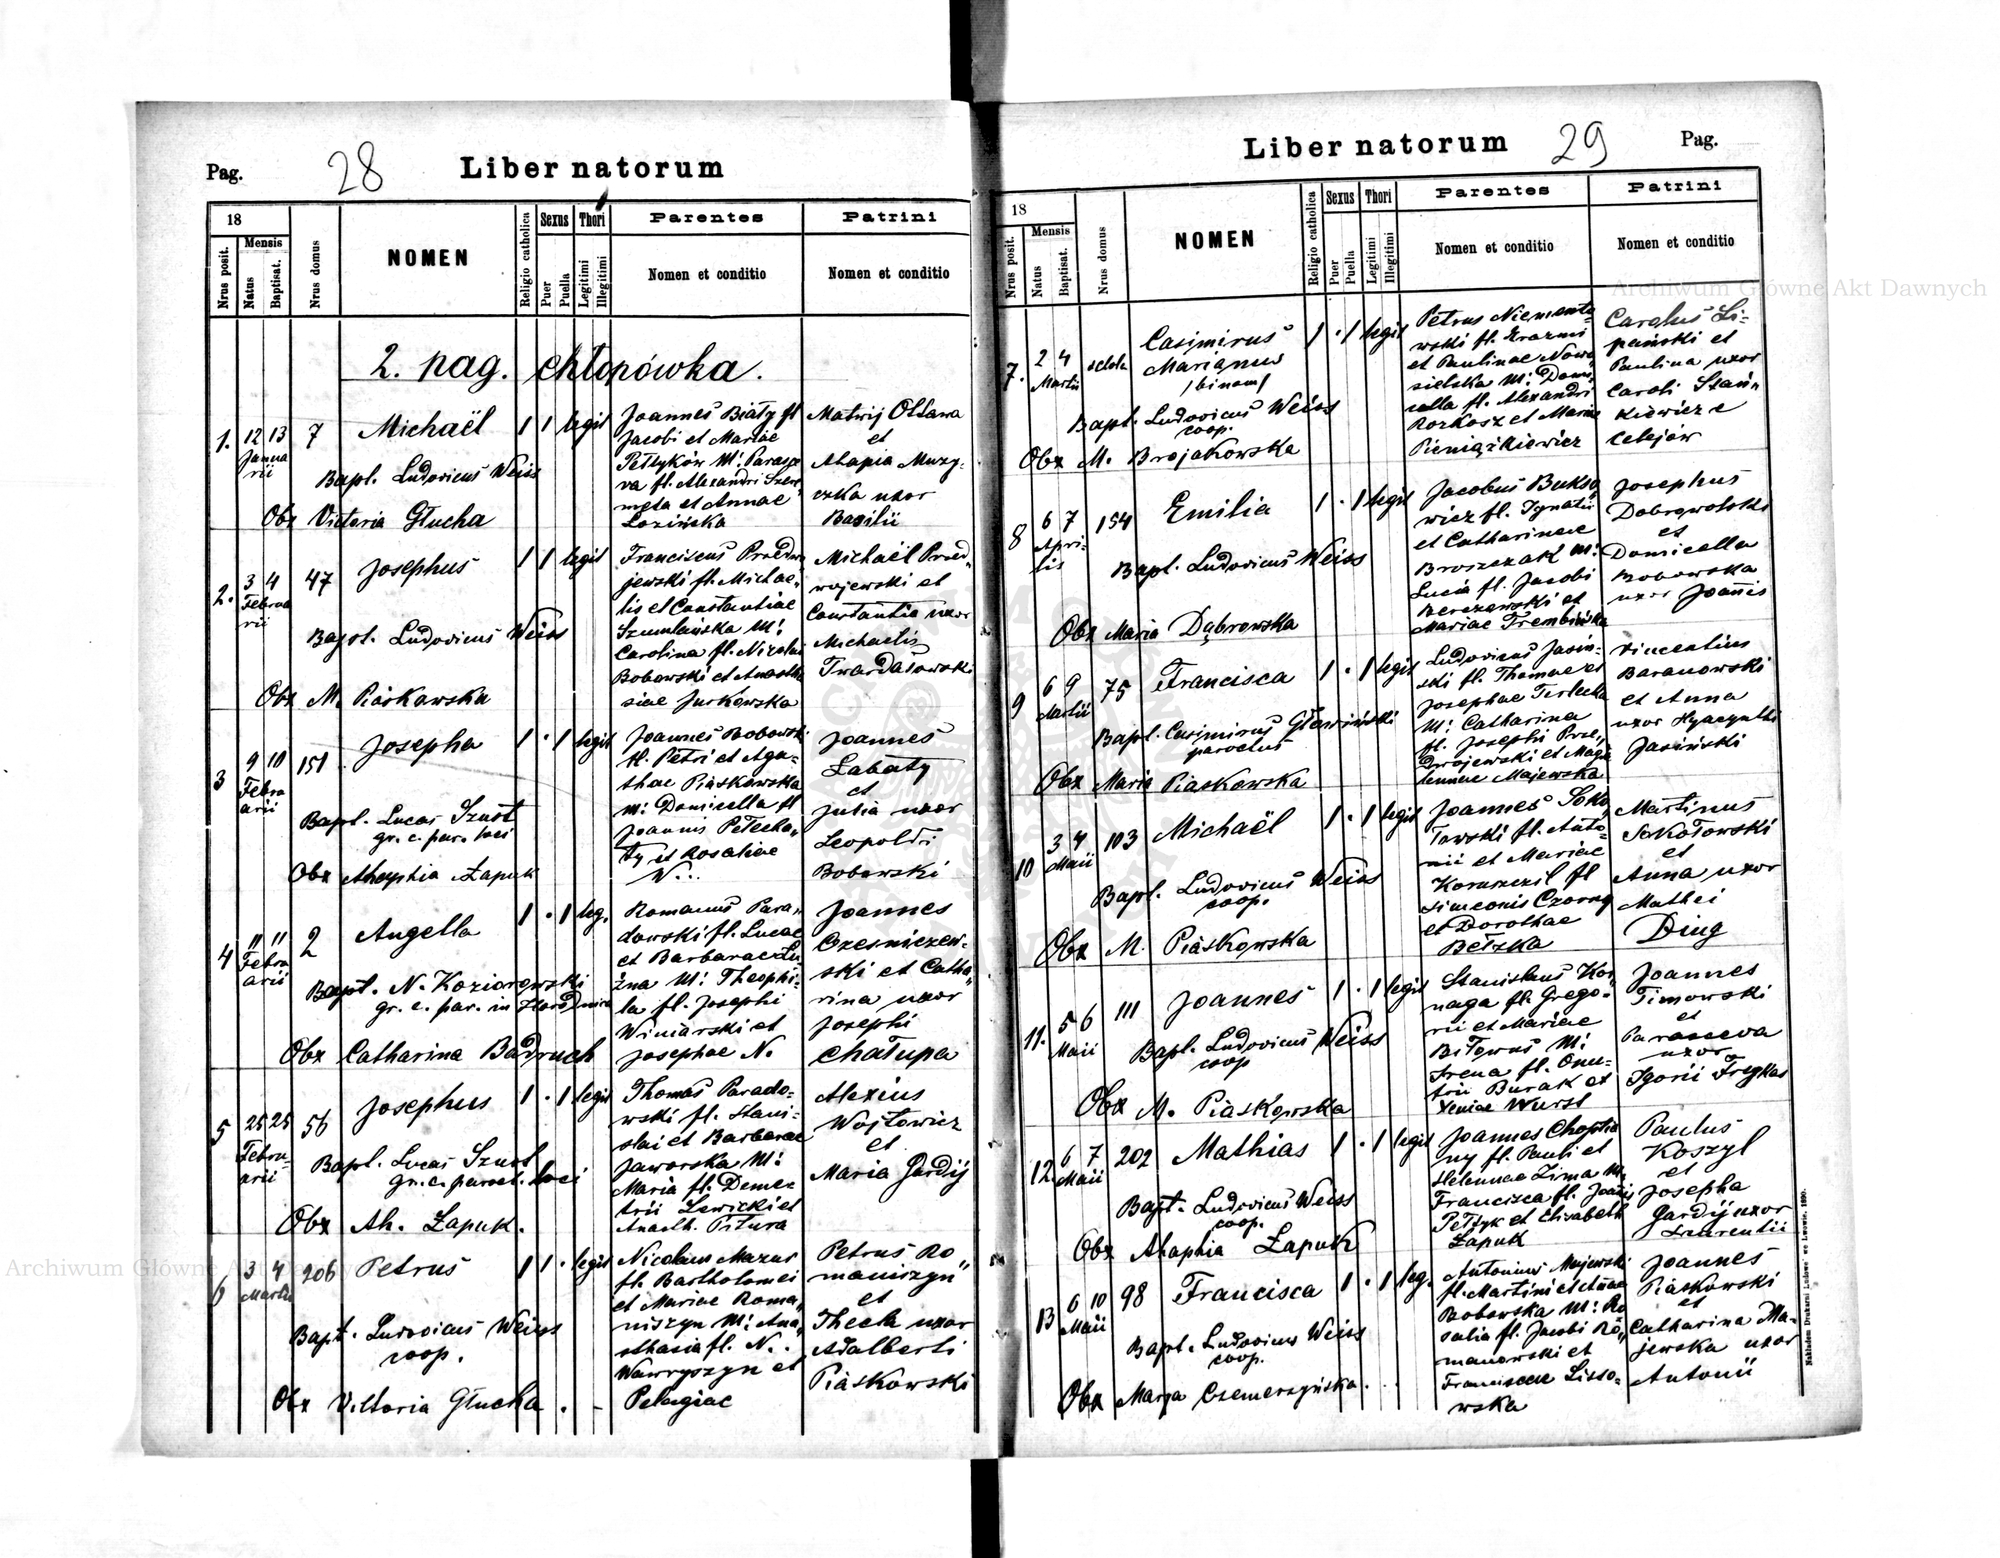 Pag.
28
Liber natorum
18
Mensis
Nrus posit.
Natus
Baptisat.
Nrus domus
NOMEN
Religio catholica
Sexus
Puer
Puella
Thori
Legitimi
Illegitimi
Parentes
Nomen et conditio
Patrini
Nomen et conditio
2. pag. Chłopówka.
1.
12 13
Janua
rii
7
Michaël
1 1 legit
Bapt. Ludovicus Weiss
Obx Victoria Głucha
Joannes Biały fl
Jacobi et Mariae
Pełtyków M: Parasce
va fl. Alexandri Szere
meta et Annae
Łozińska
Matwij Ottawa
et
Ahapia Muzy-
czka uxor
Basilii
2.
3 4
Februa
rii
47
Josephus
1 1 legit
Bapt. Ludovicus Weiss
Obx M. Piaskowska
Franciscus Przedwo
jewski fl. Michae-
lis et Constantiae
Szumlańska M:
Carolina fl. Nicolai
Bobowski et Anasta
siae Jurkowska
Michaël Przed-
wojewski et
Constantia uxor
Michaelis
Twardałowski
3
9 10
Febru
arii
151
Josepha
1 . 1 legit
Bapt. Lucas Szust
gr. c. par. loci
Obx Ahaphia Łapuk
Joannes Bobowski
fl. Petri et Aga-
thae Piaskowska
M: Domicella fl
Joannis Pełecha-
ty et Rosaliae
N...
Joannes
Łabaty
et
Julia uxor
Leopoldi
Bobowski
4
" "
Febru
arii
2
Angella
1 . 1 leg.
Bapt. N. Koziorowski
gr. c. par. in
Obx Catharina Badruch
Romanus Para-
dowski fl. Lucae
et Barbarae Łu
żna M: Theophi-
la fl. Josephi
Winiarski et
Josephae N.
Joannes
Czesniczew-
ski et Catha-
rina uxor
Josephi
Chałupa
5
25 25
Febru-
arii
56
Josephus
1 . 1 legit
Bapt. Lucas Szust
gr. c. paroch. loci
Obx Ah. Łapuk.
Thomas Parado-
wski fl. Stani-
slai et Barbarae
Jaworska M:
Maria fl. Deme-
trii Lewicki et
Anasth. Pitura
Alexius
Wojtowicz
et
Maria Gardij
6
3 4
Martii
206
Petrus
1 1 . legit
Bapt. Ludovicus Weiss
coop.
Obx Victoria Głucha . -
Nicolaus Mazur
fl. Bartholomei
et Mariae Roma-
niszyn M: Ana-
sthasia fl. N..
Wawryszyn et
Pelagiae
Petrus Ro-
maniszyn
et
Thecla uxor
Adalberti
Piaskowski
Liber natorum
29
Pag.
18
Mensis
Nrus posit.
Natus
Baptisat.
Nrus domus
NOMEN
Religio catholica
Sexus
Puer
Puella
Thori
Legitimi
Illegitimi
Parentes
Nomen et conditio
Patrini
Nomen et conditio
7.
2 4
Martii
Casimirus
Marianus
/binom/
1 . 1 legit
Bapt. Ludovicus Weiss
coop.
Obx M. Brojakowska
Petrus Niemento-
wski fl. Erazmi
et Paulinae Nowo
sielska M: Domi
cella fl. Alexandri
Rozkosz et Mariae
Pieniążkiewicz
Carolus Li-
pański et
Paulina uxor
Caroli Szań-
kiewicz e
Celejów
8
6 7
Apri-
lis
154
Emilia
1 . 1 legit
Bapt. Ludovicus Weiss
Obx Maria Dąbrowska
Jacobus Bukso
wicz fl. Ignatii
et Catharinae
Broszczak M:
Lucia fl. Jacobi
Berezowski et
Mariae Trembińska
Josephus
Dobrowolski
et
Domicella
Bobowska
uxor Joannis
9
6 9
Martii
75
Francisca
1 . 1 legit
Bapt. Casimirus Gławiński
parochus
Obx Maria Piaskowska
Ludovicus Jasin-
ski fl. Thomae et
Josephae Terlecka
M: Catharina
fl. Josephi Prze-
dwojewski et Magda
lennae Majewska
Vincentius
Baranowski
et Anna
uxor Hyacynthi
Jasiński
10
3 4
Maii
103
Michaël
1 . 1 legit
Bapt. Ludovicus Weiss
coop.
Obx M. Piaskowska
Joannes Soko
łowski fl. Anto-
nii et Mariae
fl
Simeonis Czorny
et Dorothae
Bełzka
Martinus
Sokołowski
et
Anna uxor
Mathei
Diug
11.
5 6
Maii
111
Joannes
1 . 1 legit
Bapt. Ludovicus Weiss
coop
Obx M. Piaskowska
Stanislaus Kor
naga fl. Grego-
rii et Mariae
Biłowus M:
Irena fl. Onu-
frii Burak et
Xeniae Wurst
Joannes
Timowski
et
Parasceva
uxor
Igorii Fregkas
12.
6 7
Maii
202
Mathias
1 . 1 legit
Bapt. Ludovicus Weiss
coop.
Obx Ahaphia Łapuk
Joannes Chopta
ny fl. Pauli et
Helennae Zima M:
Francisca fl. Joannis
Pełtyk et Elisabeth
Łapuk
Paulus
Koszyl
et
Josepha
Gardij uxor
Laurentii
13
6 10
Maii
98
Francisca
1 . 1 leg.
Bapt. Ludovicus Weiss
coop.
Obx Marya Czemerzyńska . . .
Antonius Majewski
fl. Martini et Annae
Bobowska M: Ro
salia fl. Jacobi Ro-
manowski et
Franciscae Lisso-
wska
Joannes
Piaskowski
et
Catharina Ma-
jewska uxor
Antonii
Nakładem Drukarni Ludowej we Lwowie. 1890.
Archiwum Główne Akt Dawnych
Archiwum Główne Akt Dawnych